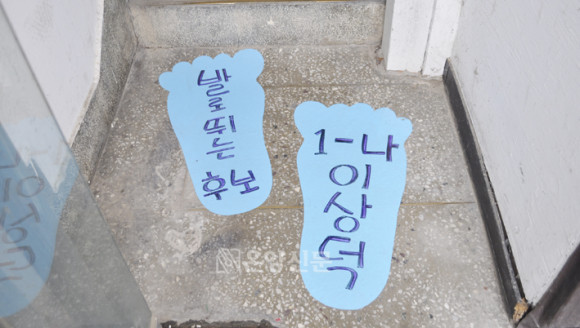 발로
뛰는
후보
1-나
이상욱
온양신문